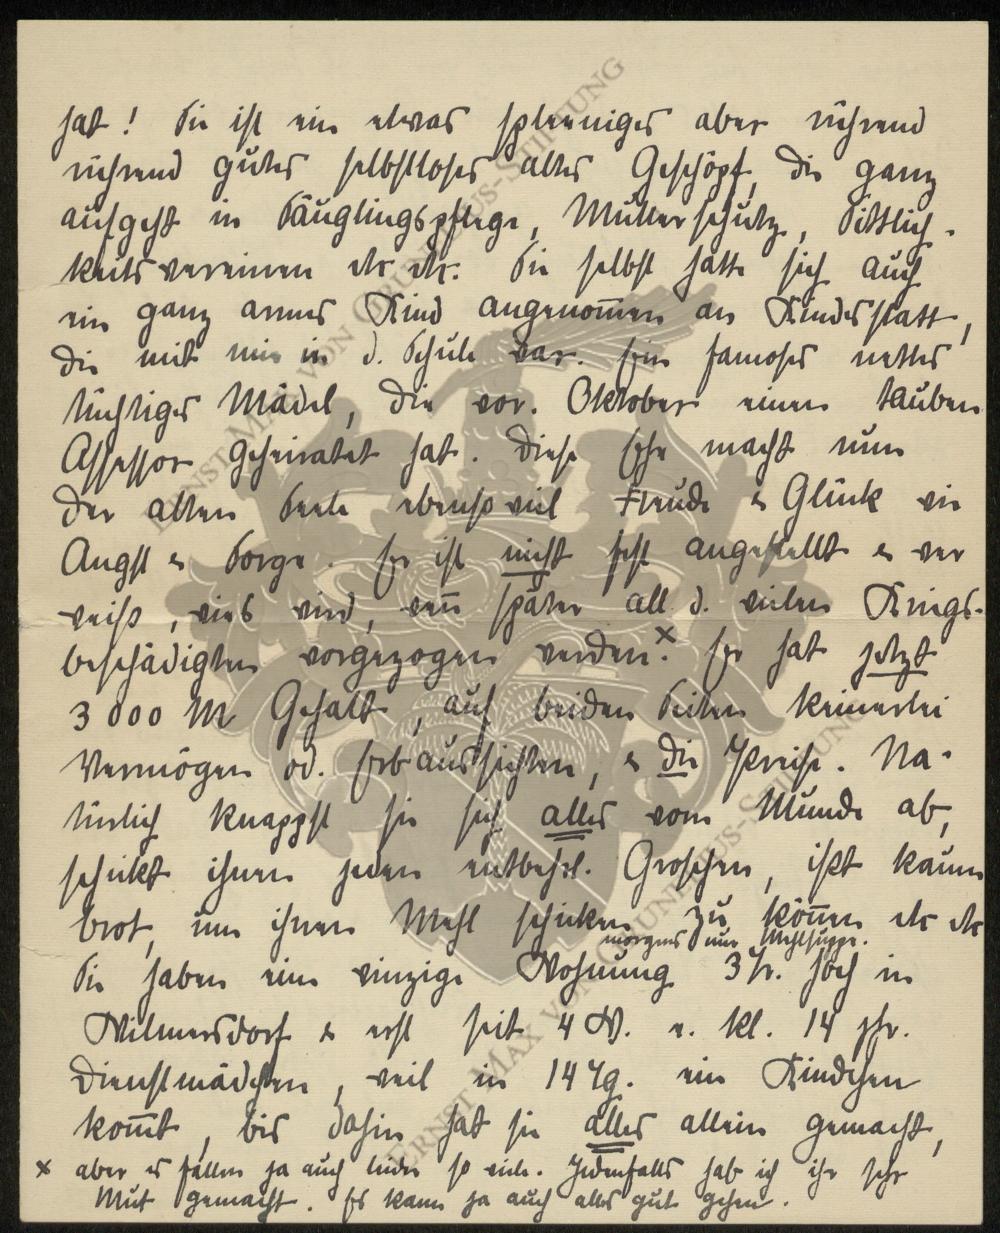 hat! Sie ist ein etwas spleeniges aber rührend
rührend gutes selbstloses altes Geschöpf, die ganz
aufgeht in Säuglingspflege, Mutterschutz, Sittlich-
keitsvereinen etc etc. Sie selbst hatte sich auch
ein ganz armes Kind angenom̄en an Kindesstatt,
die mit mir in d. Schule war. Ein famoses nettes
tüchtiges Mädel, die vor. Oktober einen tauben
Assessor geheiratet hat. Diese Ehe macht nun
der alten Seele ebensoviel Freude & Glück wie
Angst & Sorge. Er ist nicht fest angestellt & wer
weiss, wies wird, wen̄ später all d. vielen Kriegs-
beschädigten vorgezogen werden.x Er hat jetzt
3000 M Gehalt, auf beiden Seiten keinerlei
Vermögen od. Erbaussichten, & die Preise. Na-
türlich knappst sie sich alles vom Munde ab,
schickt ihnen jeden entbehrl. Groschen, isst kaum
Brot, um ihnen Mehl schicken zu kön̄en etc etc
morgens nur Mehlsuppe.
Sie haben eine winzige Wohnung 3 Tr. hoch in
Wilmersdorf & erst seit 4 W. e. kl. 14 jhr.
Dienstmädchen, weil in 14 Tg. ein Kindchen
kom̄t, bis dahin hat sie alles allein gemacht,
x aber es fallen ja auch leider so viele. Jedenfalls hab ich ihr sehr
Mut gemacht. Es kann ja auch alles gut gehen.
ERNST MAX VON GRUNELIUS-STIFTUNG
ERNST MAX VON GRUNELIUS-STIFTUNG